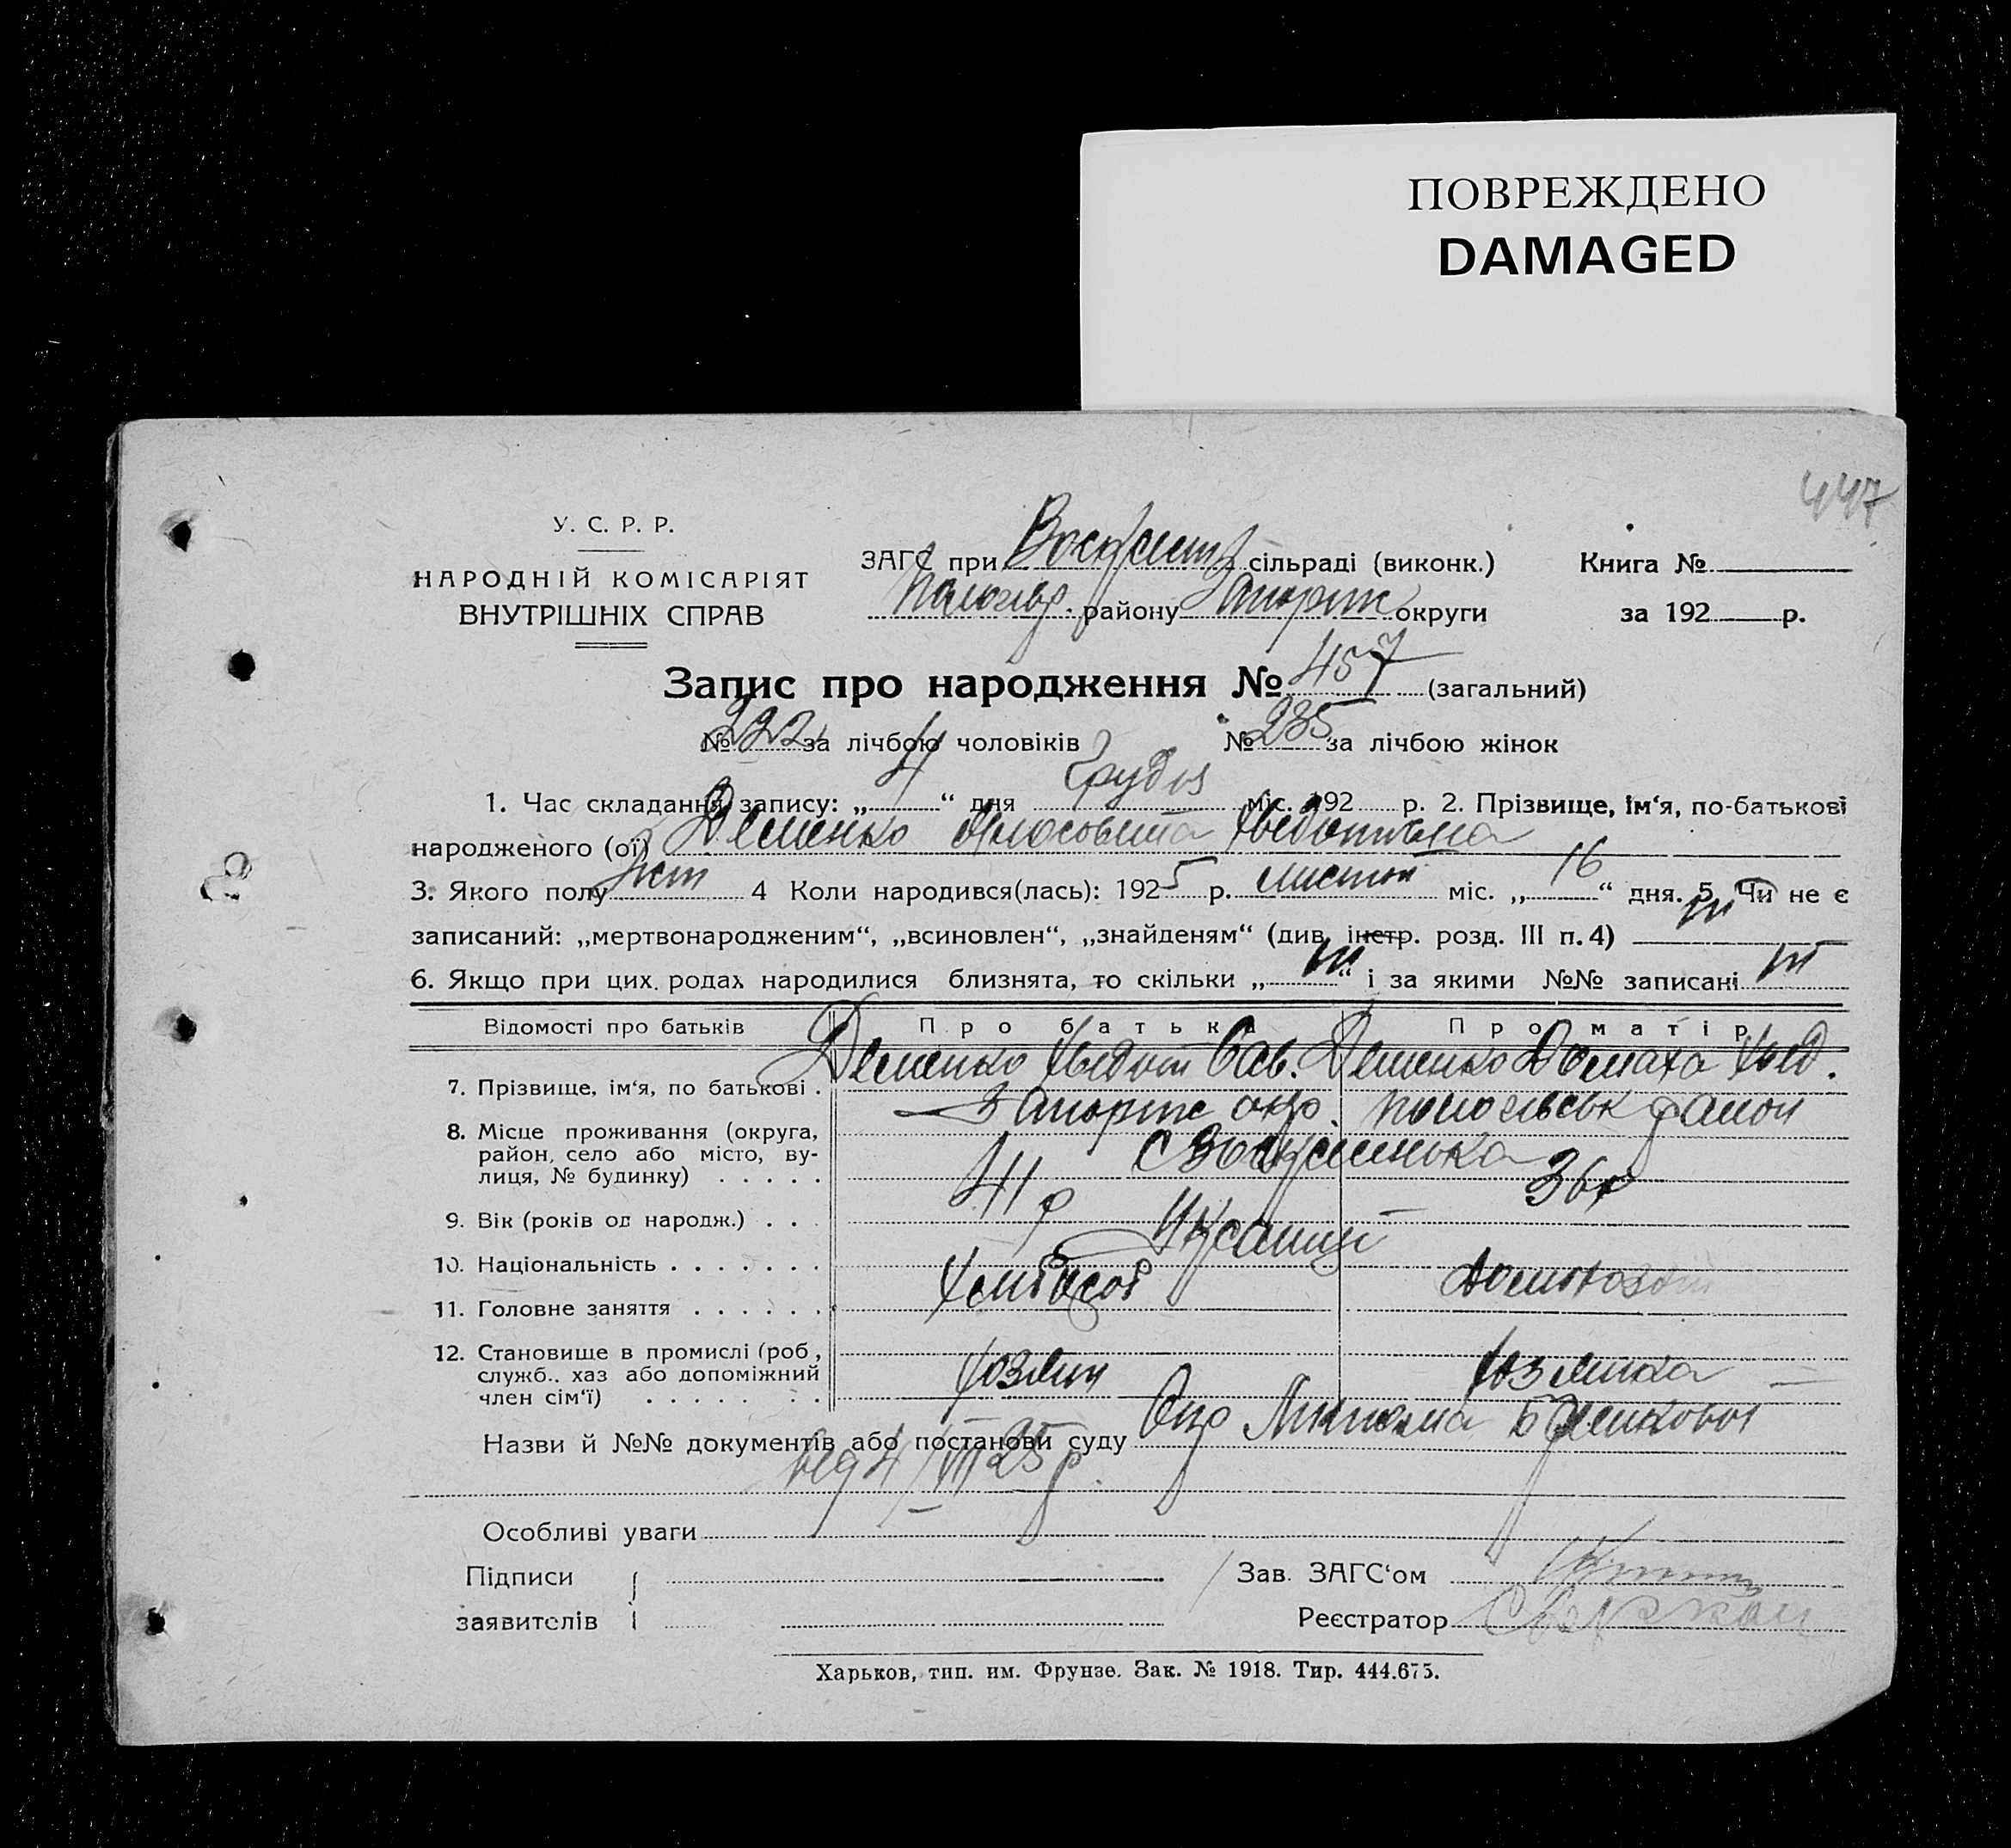 ПОВРЕЖДЕНО
DAMAGED
447
У. С. Р. Р.
НАРОДНІЙ КОМІСАРІЯТ
ВНУТРІШНІХ СПРАВ
ЗАГС при сільраді (виконк.)
району округи
Книга №
за 192 р.
Запис про народження № 457 (загальний)
№ 222 за лічбою чоловіків № 235 за лічбою жінок
1. Час складання запису: „ 4 “ дня Грудня міс. 192 р. 2. Прізвище, ім‘я, по-батькові
народженого (ої) Деменко
3. Якого полу 4 Коли народився(лась): 1925 р. листоп міс. „ 16 “ дня. 5. Чи не є
записаний: „мертвонародженим“, „всиновлен“, „знайденям“ (див. інстр. розд. III п. 4)
6. Якщо при цих родах народилися близнята, то скільки „ “ і за якими №№ записані
Відомості про батьків Про батька Про матір
7. Прізвище, ім‘я, по батькові . Деменко Хведот Сав. Деменко Домаха Хвед.
8. Місце проживання (округа, Запоріж окр район
район, село або місто, ву-
лиця, № будинку) . . . . .
9. Вік (років од народж.) . . 41 р 36 р
10. Національність . . . . . . .
11. Головне заняття . . . . . . Хлібороб
12. Становище в промислі (роб,
служб.. хаз або допоміжний
член сім‘ї) . . . . . . . хозяин хозяика
Назви й №№ документів або постанови суду
від 4/XII 25 р.
Особливі уваги
Підписи
заявителів
Зав. ЗАГС‘ом
Реєстратор
Харьков, тип. им. Фрунзе. Зак. № 1918. Тир. 444.675.